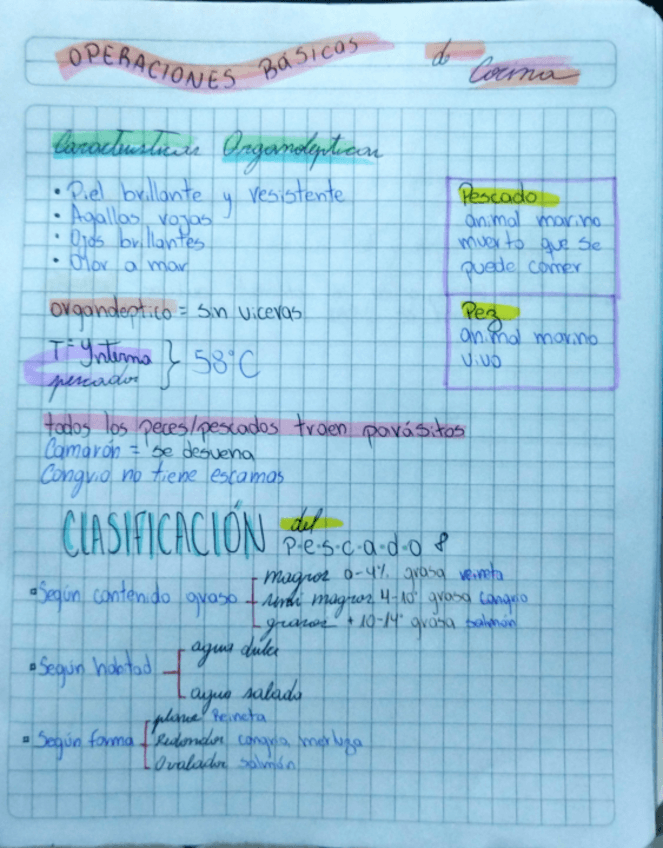 OPERACIONES BÁSICAS de Cocina
Características Organolepticas
• Piel brillante y resistente
• Agallas rojas
• Ojos brillantes
• Olor a mar
Pescado
animal marino
muerto que se
puede comer
Pez
animal marino
vivo
organoleptico = sin viceras
T° Interna
pescados } 58°C
todos los peces/pescados traen parásitos
Camarón = se desvena
Congrio no tiene escamas
CLASIFICACIÓN del P.e.s.c.a.d.o :
• Según contenido graso
magros 0-4% grasa reineta
semi magros 4-10° grasa congrio
grasos + 10-14° grasa salmón
• Según habtad
agua dulce
agua salada
• Según forma
planos Reineta
Redondos congrio, merluza
Ovalados salmón